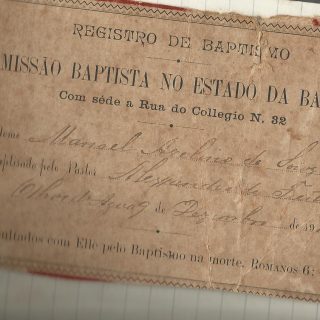 REGISTRO DE BAPTISMO
MISSÃO BAPTISTA NO ESTADO DA BA
Com séde a Rua do Collegio N. 32
Nome Manoel Avelino de Souz
aptisado pelo Pastor Alexandre de Freitas
de Dezembro de 19
pultados com Elle pelo Baptismo na morte. ROMANOS 6: